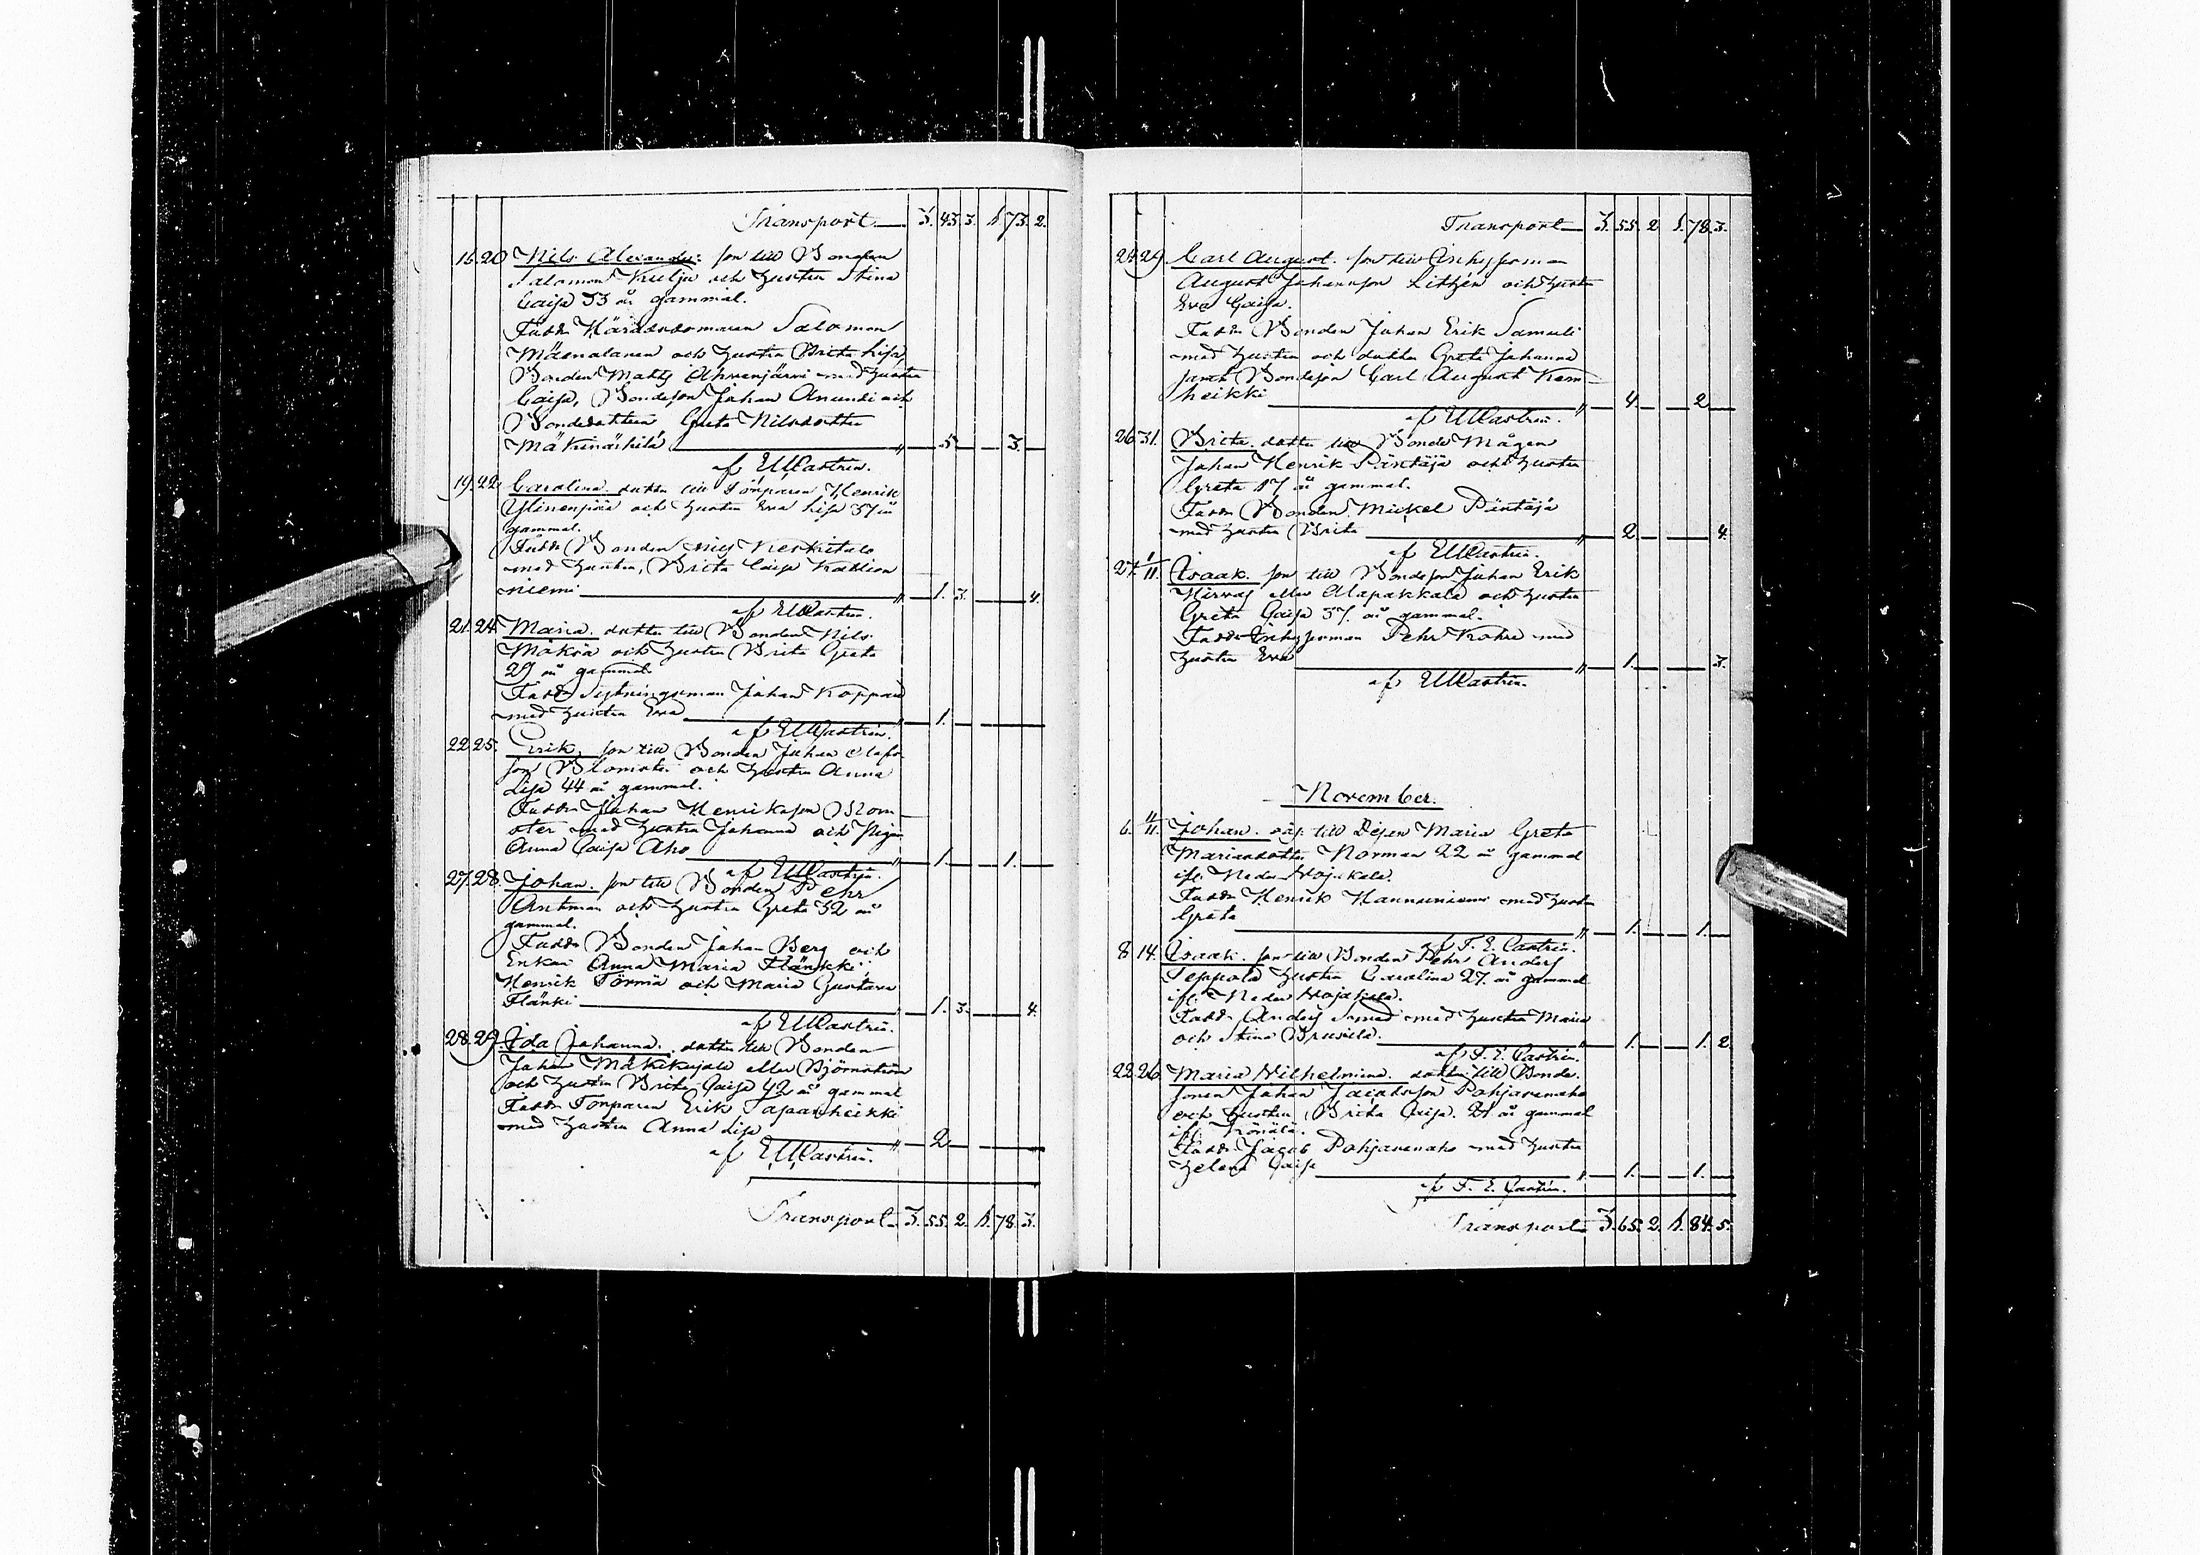 Transport 3. 43. 3. 1. 73. 2.
16. 20 Nils Alexander. son till Bonden
Salomon Kulju och hustru Stina
Caisa 33 år gammal.
Fadd: Häradsdomaren Salomon
Mäenalanen och hustru Brita Lisa,
Bonden Matts Ahvenjärvi med hustru
Caisa, Bondeson Johan Anundi och
Bondedottren Greta Nilsdotter
5. 3.
af E W Castrén.
19. 22 Carolina. dotter till Torparen Henrik
Ylinenjärvi och hustru Eva Lisa 37 år
gammal.
Fadd: Bonden Nils Keskitalo
med hustru, Brita Caisa
niemi 1. 3. 4.
af E W Castrén.
21. 24. Maria. dotter till Bonden Nils
och hustru Brita Greta
29 år gammal.
Fadd: Sytningsman Johan
med hustru Eva 1.
af E W Castrén.
22. 25. Erik. son till Bonden Johan Olofs
son Blomster och hustru Anna
Lisa 44 år gammal.
Fadd: Johan Henriksson Blom-
ster med hustru Johanna och pigan
Anna Caisa Aho 1. 1.
af E W Castrén.
27. 28. Johan. son till Bonden Pehr
Antman och hustru Greta 32 år
gammal.
Fadd: Bonden Johan Berg och
Enkan Anna Maria Flänkki
Henrik Törmä och Maria Gustava
Flänki 1. 3. 4.
af E W Castrén.
28. 29. Ida Johanna. dotter till Bonden
Johan eller Björnström
och hustru Brita Caisa 42 år gammal
Fadd: Torparen Erik Tapanheikki
med hustru Anna Lisa 2.
af E W Castrén.
Transport 3. 55. 2. 1. 78. 3.
Transport 3. 55. 2 1. 78. 3.
29. Carl August. son till Inhysesman
August Johansson Litzén och hustru
Eva Caisa.
Fadd: Bonden Johan Erik Samuli
med hustru och dotter Greta Johanna
samt Bondeson Carl August Kem-
heikki 4. 2.
af E W Castrén.
26. 31. Brita. dotter till Bonde Mågen
Johan Henrik Päntäjä och hustru
Greta 17 år gammal.
Fadd: Bonden Mickel Päntäjä
med hustru Brita 2. 4.
af E W Castrén.
27. 1/11. Isaak. son till Bondeson Johan Erik
Hirvas eller Alapakkala och hustru
Greta Caisa 37. år gammal.
Fadd: Inhysesman Pehr Kohre med
hustru Eva 1. 3.
af E W Castrén.
November.
6. 11/11. Johan. oäg. till Pigan Maria Greta
Mariasdotter Norman 22 år gammal
ifr. Neder Vojakala.
Fadd: Henrik Hannuniemi med hustru
Greta 1. 1.
af F. E. Castrén.
8. 14. Isaak. son till Bonden Pehr Anders
Seppola hustru Carolina 27. år gammal
ifr. Neder Vojakala.
Fadd: Anders Smed med hustru Maria
och Stina Brusila. 1. 1. 2.
af F. E. Castrén.
22. 26. Maria Wilhelmina. dotter till Bonde-
sonen Johan Jacobsson Pohjasenaho
och hustru Brita Caisa. 21 år gammal
ifr.
Fadd: Jacob Pohjasenaho med hustru
Helena Caisa 1. 1.
af F. E. Castrén.
Transport 3. 65. 2. 1. 84. 5.